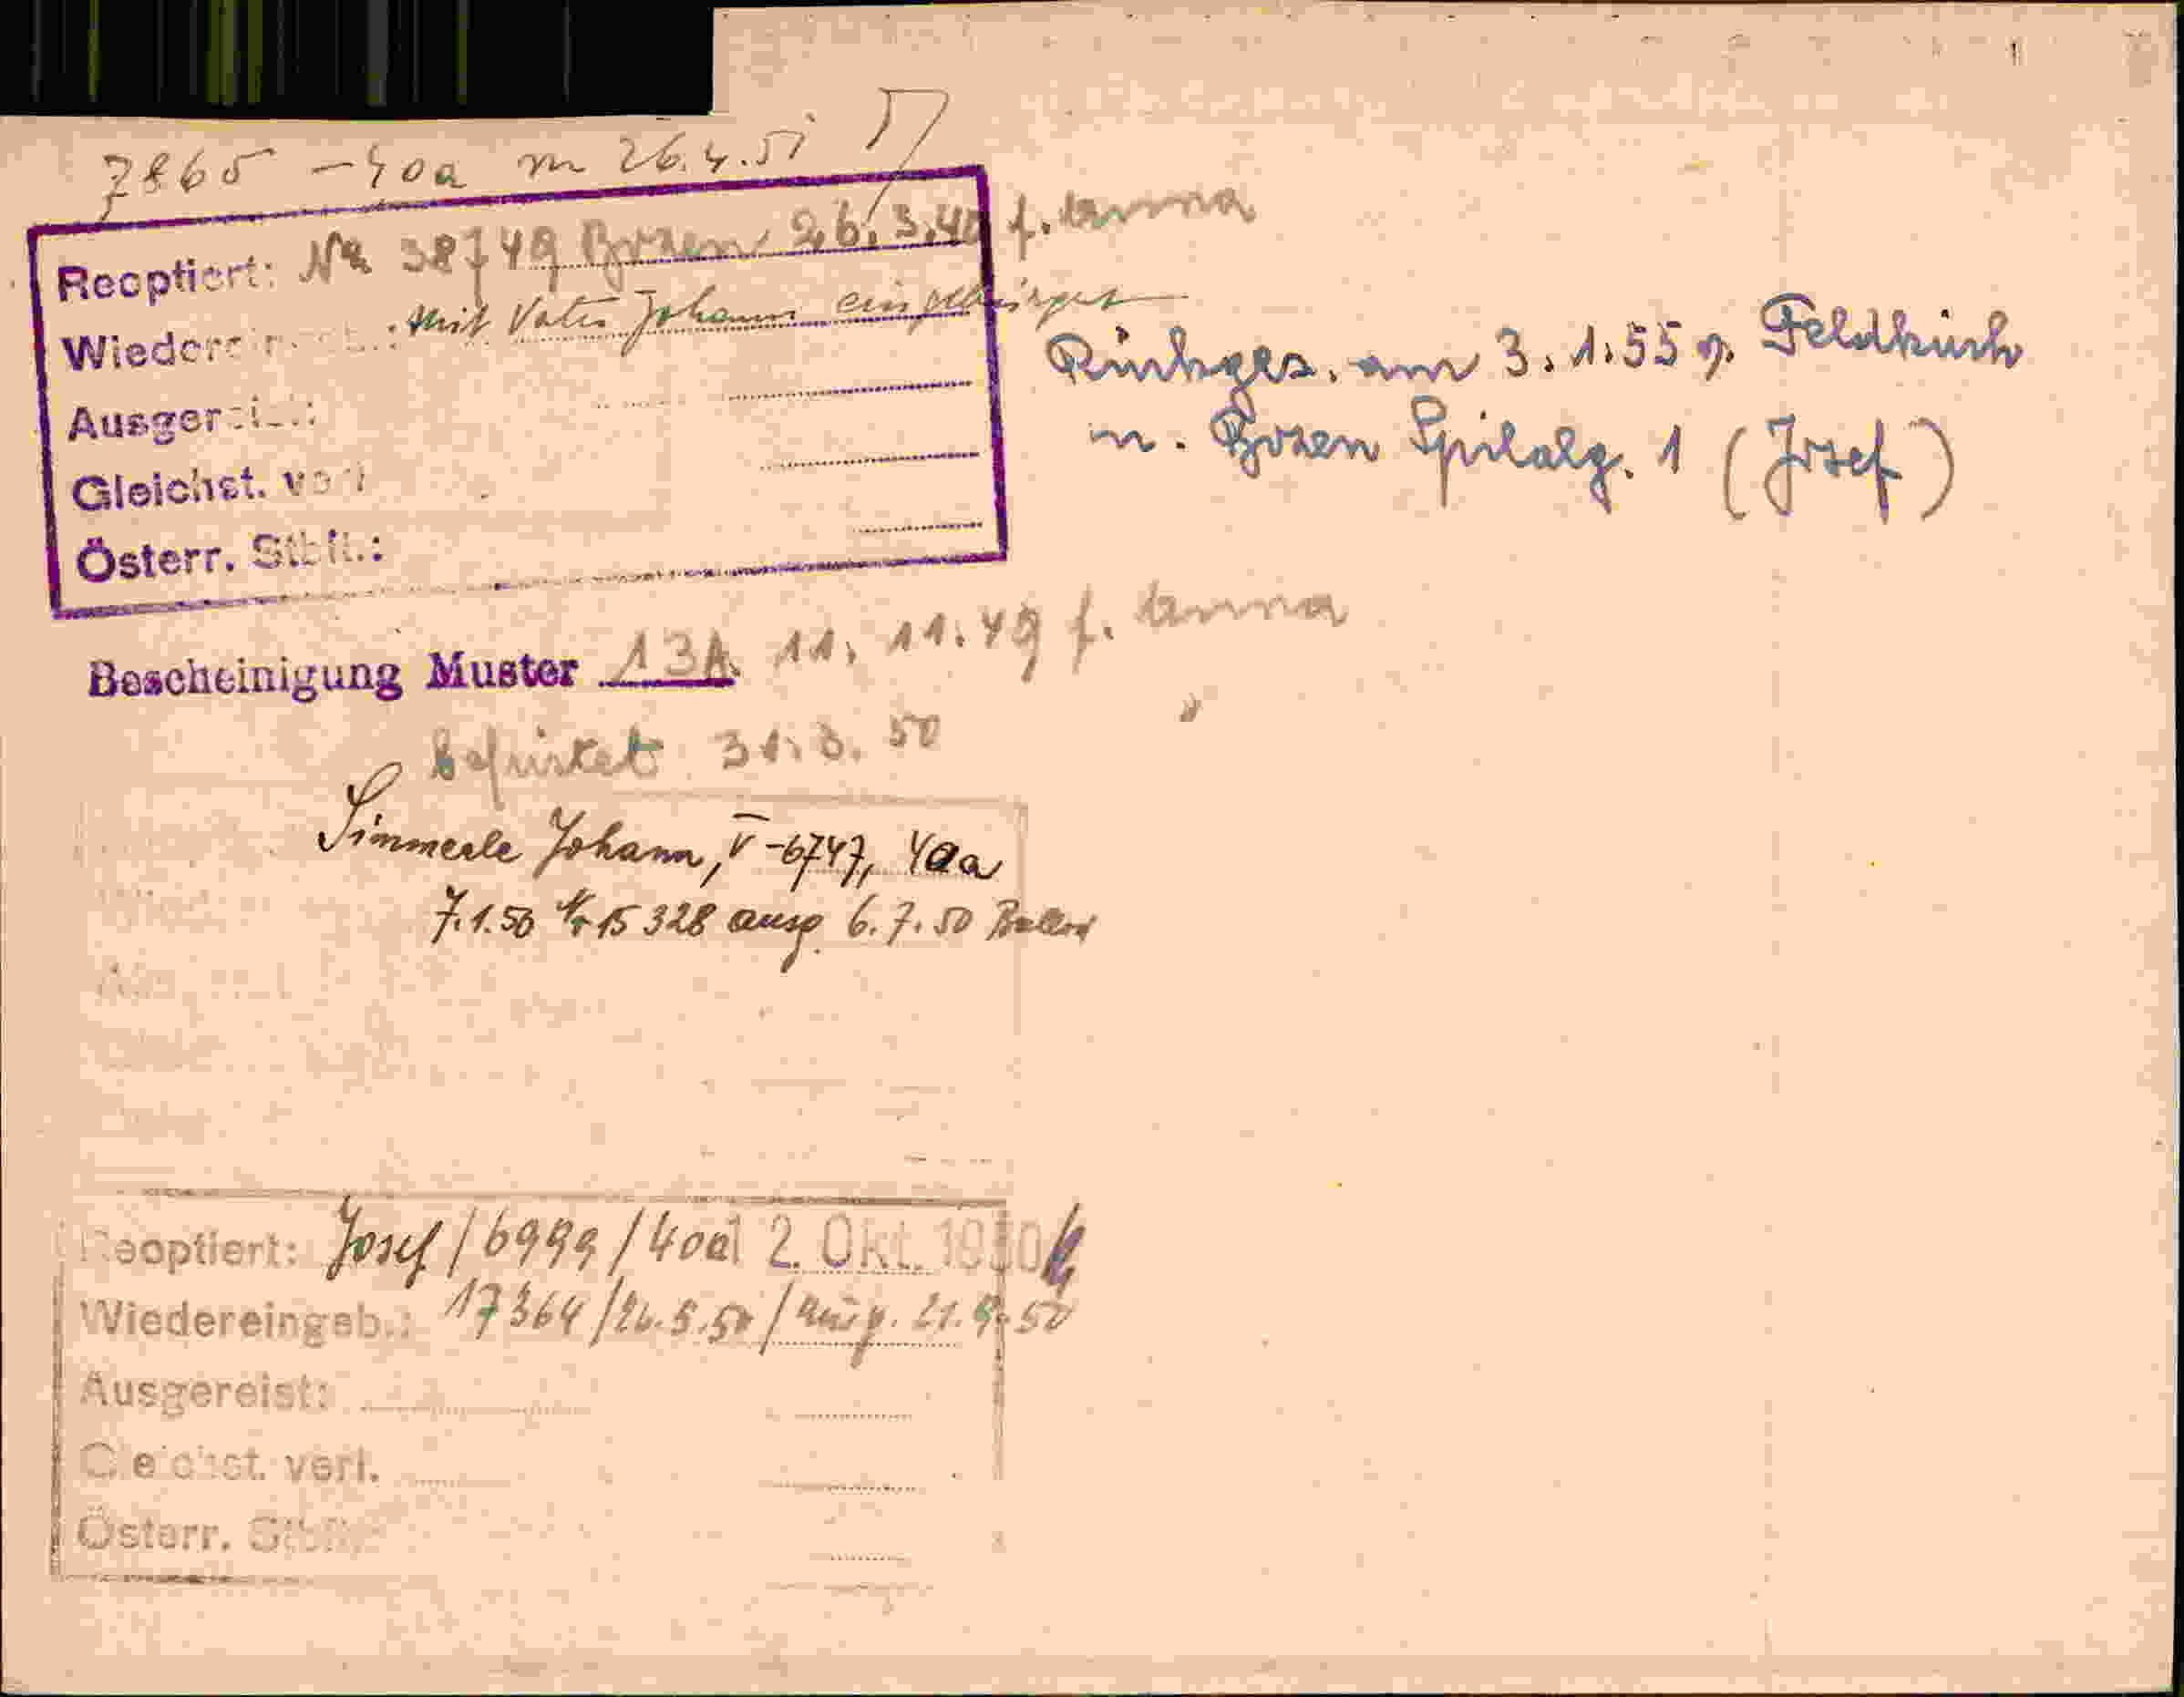 7865 - 40a m 26.4.51
Reoptiert: Na 38749 Bozen 26.3.49 f. Anna
Wiedere mit Vater Johann eingebürgert
Ausger
Gleichst. ver
Österr. Stb
Rückges. am 3.1.55 v. Feldkirch
n. Bozen Spitalg. 1 (Josef)
Bescheinigung Muster 13A. 11.11.49 f. Anna
befristet 31.3.50
Simmerle Johann, V-6747, 40a
7.1.50 Nr 15328 ausg. 6.7.50
Reoptiert: Josef/6999/40a 2. Okt. 1950
Wiedereingeb.: 17364/26.5.50/ausg. 21.9.50
Ausgereist:
Gleichst. verl.
Österr. Stb